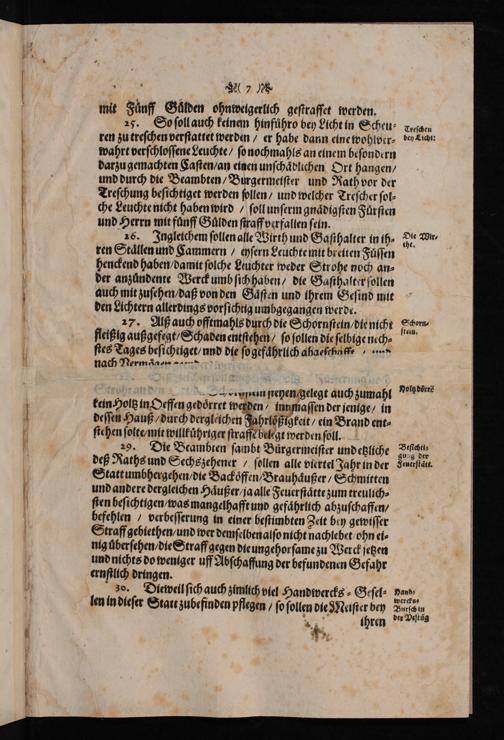 7
mit Fünff Gülden ohnweigerlich gestraffet werden.
25. So soll auch keinem hinführo bey Licht in Scheu-
ren zu treschen verstattet werden / er habe dann eine wohlver-
wahrt verschlossene Leuchte / so nochmahls an einem besondern
darzu gemachten Casten / an einen unschädlichen Ort hangen /
und durch die Beambten / Burgermeister und Rath vor der
Treschung besichtiget werden sollen / und welcher Trescher sol-
che Leuchte nicht haben wird / soll unserm gnädigsten Fürsten
und Herrn mit fünff Gülden straff verfallen sein.
Treschen
bey Licht:
26. Ingleichem sollen alle Wirth und Gasthalter in ih-
ren Ställen und Cammern / eysern Leuchte mit breiten Füssen
henckend haben / damit solche Leuchter weder Strohe noch an-
der anzündente Werck umb sich haben / die Gasthalter sollen
auch mit zusehen / daß von den Gästen und ihrem Gesind mit
den Lichtern allerdings vorsichtig umbgegangen werde.
Die Wir-
the.
27. Alß auch offtmahls durch die Schornstein / die nicht
fleißig außgefegt / Schaden entstehen / so sollen die selbige nech-
stes Tages besichtiget / und die so gefährlich
nach
Schorn-
stein.
stehen / gelegt auch zumahl
kein Holtz in Oeffen gedörret werden / inmassen der jenige / in
dessen Hauß / durch dergleichen Fahrlößigkeit / ein Brand ent-
stehen solte / mit willkühriger straffe belegt werden soll.
Holtz dörre
29. Die Beambten sambt Bürgermeister und etzliche
deß Raths und Sechszehener / sollen alle viertel Jahr in der
Statt umbhergehen / die Backöffen / Brauhäußer / Schmitten
und andere dergleichen Häußer / ja alle Feuerstätte zum treulich-
sten besichtigen / was mangelhafft und gefährlich abzuschaffen /
befehlen / verbesserung in einer bestimbten Zeit bey gewisser
Straff gebiethen / und wer demselben also nicht nachlebet ohn ei-
nig übersehen / die Straff gegen die ungehorsame zu Werck setzen
und nichts do weniger uff Abschaffung der befundenen Gefahr
ernstlich dringen.
Besichti-
gung der
Feuerstätt.
30. Dieweil sich auch zimlich viel Handwercks-Gesel-
len in dieser Statt zubefinden pflegen / so sollen die Meister bey
ihren
Hand-
wercks-
Bursch in
der Vestüg